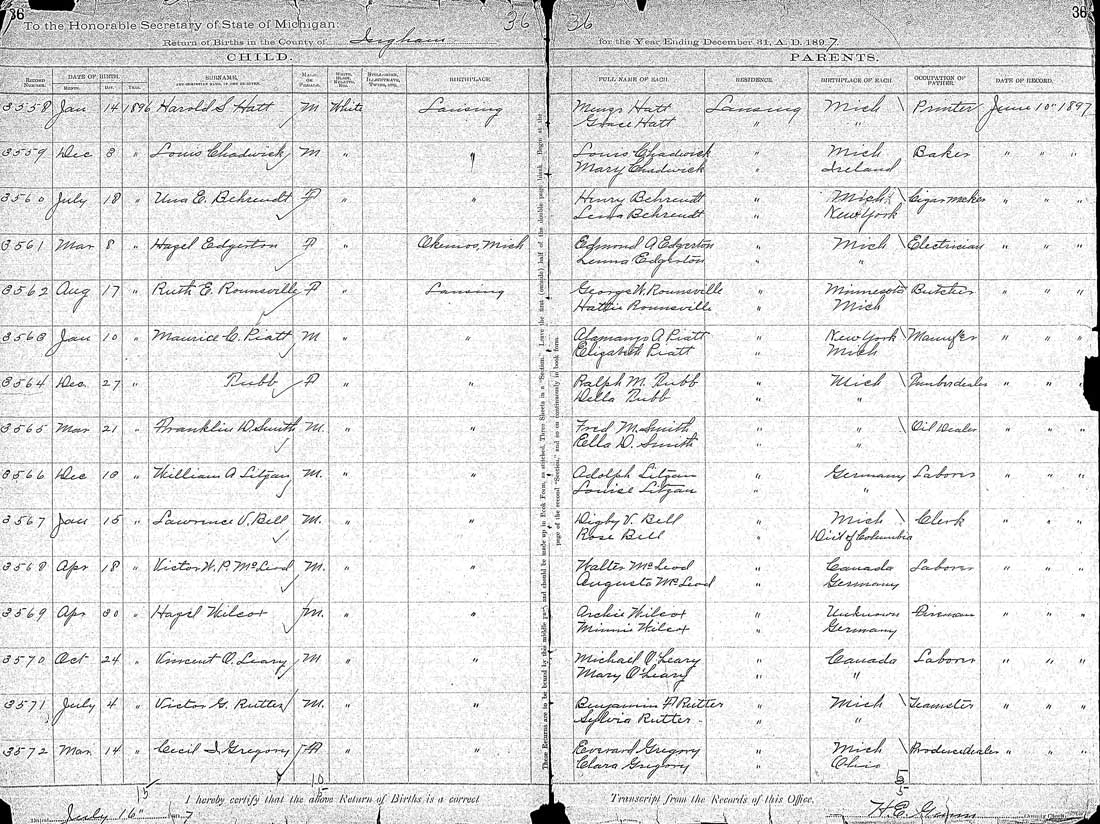 36
To the Honorable Secretary of State of Michigan: 36
Return of Births in the County of Ingham
CHILD.
RECORD NUMBER. DATE OF BIRTH. MONTH. DAY. YEAR. SURNAME, AND CHRISTIAN NAME, IF ONE BE GIVEN. MALE OR FEMALE. WHITE, BLACK, MULATTO, ETC. BIRTHPLACE.
3558 Jan 14 1896 Harold S Hatt M White Lansing
3559 Dec 3 " Louis Chadwick M " "
3560 July 18 " Una E. Behrendt F " "
3561 Mar 8 " Hazel Edgerton F " Okemos, Mich
3562 Aug 17 " Ruth E. Rounsville F " Lansing
3563 Jan 10 " Maurice C. Piatt M " "
3564 Dec. 27 " Bubb F " "
3565 Mar 21 " Franklin D. Smith M. " "
3566 Dec 13 " William A Litzan M. " "
3567 Jan 15 " Lawrence V. Bell M. " "
3568 Apr 18 " Victor W. P. McLeod M. " "
3569 Apr 30 " Hazel Wilcox M. " "
3570 Oct 24 " Vincent O. Leary M " "
3571 July 4 " Victor G. Rutter M. " "
3572 Mar 14 " Cecil I. Gregory F " "
15 10
5
I hereby certify that the above Return of Births is a correct
Dated July 16" 7
These Returns are to be bound by this middle part, and should be made up in Book Form, as stitched, Three Sheets in a "Section." Leave the first (outside) half of the double page blank. Begin at the
page of the second "Section," and so on continuously in book form.
36 36
for the Year Ending December 31, A. D. 1897.
PARENTS.
FULL NAME OF EACH. RESIDENCE. BIRTHPLACE OF EACH OCCUPATION OF FATHER. DATE OF RECORD.
Hatt Lansing Mich Printer June 10" 1897
Grace Hatt " "
Louis Chadwick " Mich Baker " " "
Mary Chadwick " Ireland
Henry Behrendt " Mich Cigar Maker " " "
Lena Behrendt " New York
Edmond A Edgerton " Mich Electrician " " "
Lenna Edgerton " "
George W. Rounsville " Minnesota Butcher " " "
Hattie Rounsville " Mich
Piatt " New York Manuf'er " " "
Elizabeth Piatt " Mich
Ralph M. Bubb " Mich " " "
Della Bubb " "
Fred M. Smith " " Oil Dealer " " "
Rella D. Smith " "
Adolph Litzan " Germany Laborer " " "
Louise Litzan " "
Digby V. Bell " Mich Clerk " " "
Rose Bell " Dist of Columbia
Walter McLeod " Canada Laborer " " "
Augusta McLeod " Germany
Archie Wilcox " Unknown Fireman " " "
Minnie Wilcox " Germany
Michael O'Leary " Canada Laborer " " "
Mary O'Leary " "
Benjamin F Rutter " Mich Teamster " " "
Sylvia Rutter " "
Everard Gregory " Mich Produce dealer " " "
Clara Gregory " Ohio
5
5
Transcript from the Records of this Office.
County Clerk.